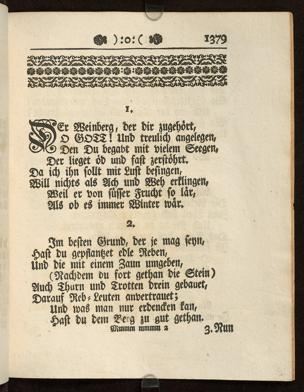 ):o:( 1379
1.
DEr Weinberg, der dir zugehört,
O GOTT! Und treulich angelegen,
Den Du begabt mit vielem Seegen,
Der lieget öd und fast zerstöhrt.
Da ich ihn sollt mit Lust besingen,
Will nichts als Ach und Weh erklingen,
Weil er von süsser Frucht so lär,
Als ob es immer Winter wär.
2.
Im besten Grund, der je mag seyn,
Hast du gepflantzet edle Reben,
Und die mit einem Zaun umgeben,
(Nachdem du fort gethan die Stein)
Auch Thurn und Trotten drein gebauet,
Darauf Reb-Leuten anvertrauet;
Und was man nur erdencken kan,
Hast du dem Berg zu gut gethan.
2
3. Nun